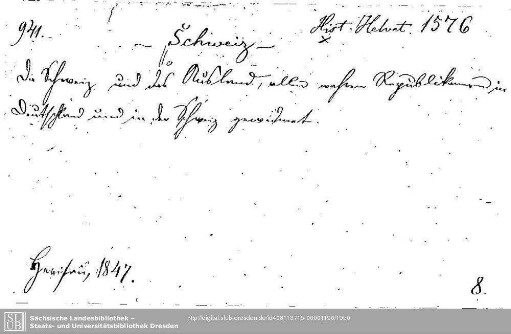 941.
— Schweiz —
Hist. Helvet. 1576
x
Die Schweiz und das Ausland, allen wahren Republikanern in
Deutschland und in der Schweiz gewidmet.
Herisau, 1847.
8.
SLUB
Sächsische Landesbibliothek –
Staats- und Universitätsbibliothek Dresden